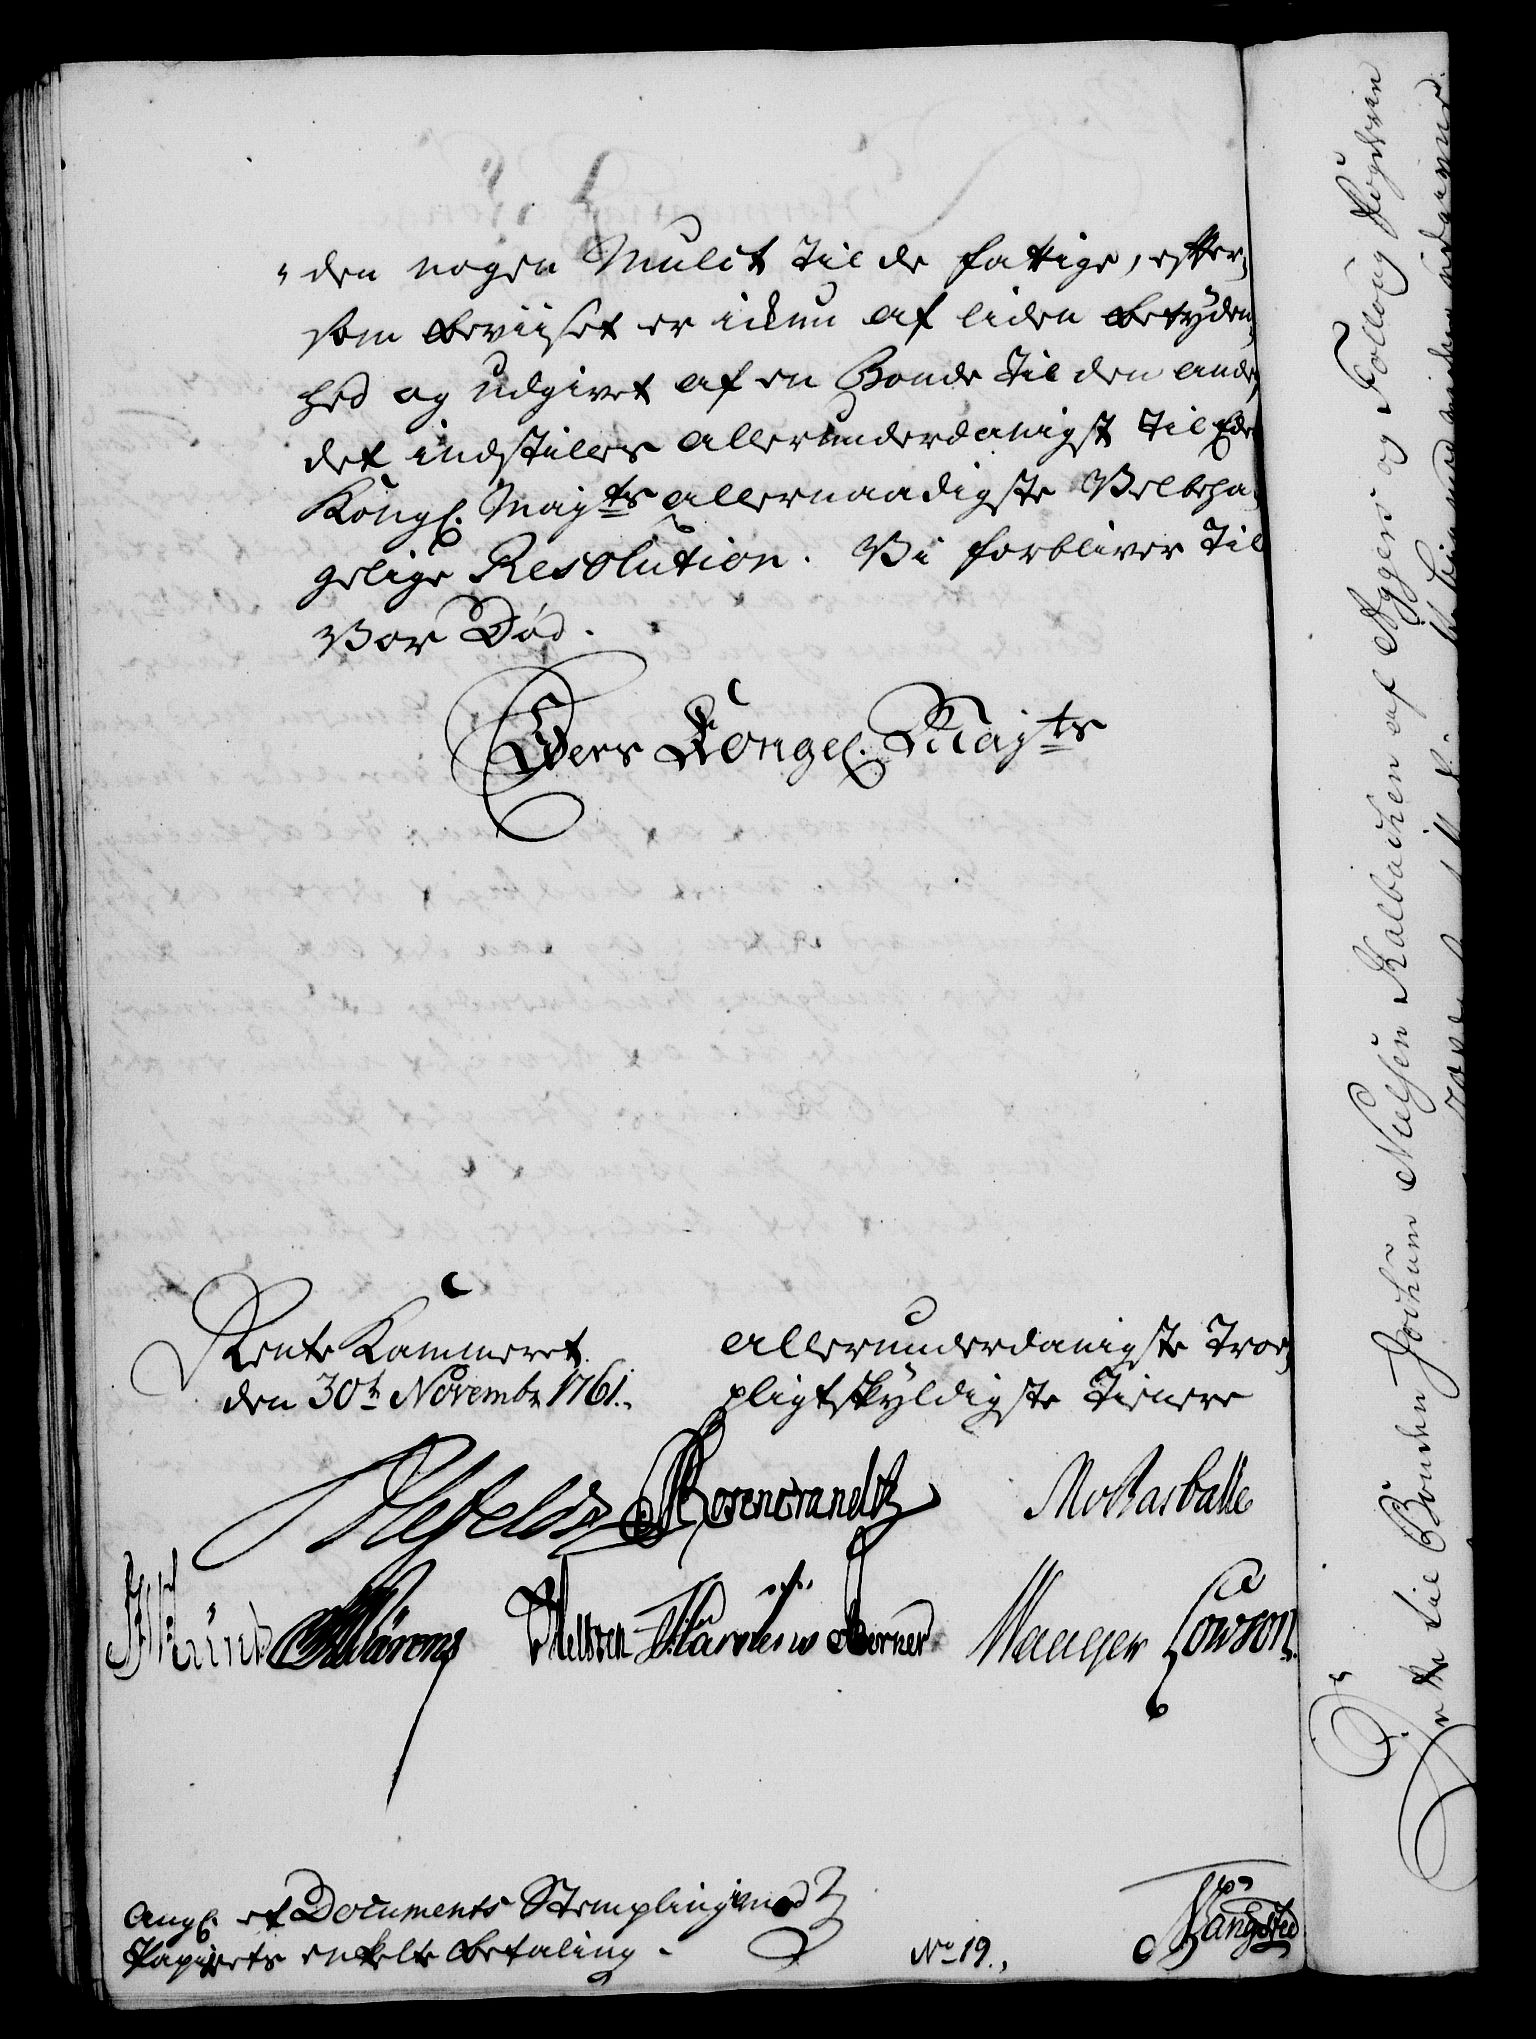 "den nogen Mulct til de fattige, efter,
som beviiset er ickun af liden betyden,
hed og udgivet af en Bonde til den ande,
det indstilles allerunderdanigst til Eders
Kongl. Mayts allernaadigste Velbeha,
gelige Resolution. Vi forbliver til
vor Død.
Eders Kongel. Mayts
Rente Kammeret
den 30t Novembr 1761.
allerunderdanigste troe,
pligtskyldigste Tienere
Rosencrandtz
Wauger Lowson.
Ang. et Documents Stempling med
Papiirets enkelte betaling.
No 19.,
Bangsted
til Bonden Jochum Nielsen Kalbachen af Aggers og Folloug Fogderie